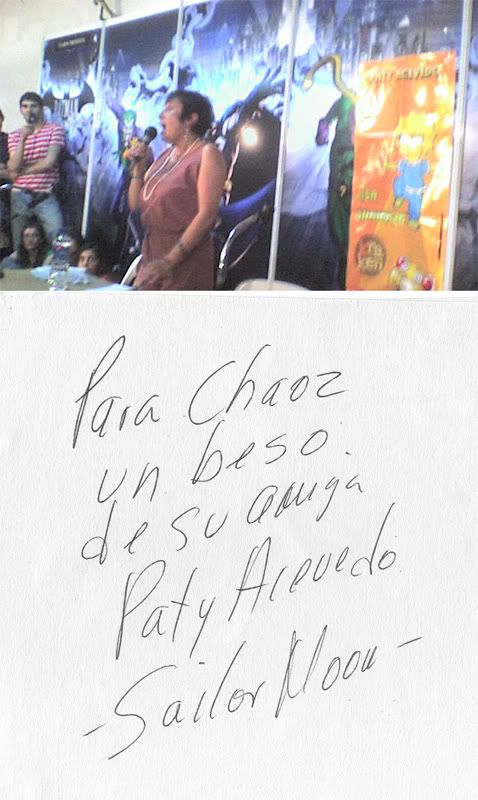 PATY ACEVEDO
Para Chaoz
un beso.
de su amiga
Paty Acevedo
-Sailor Moon-